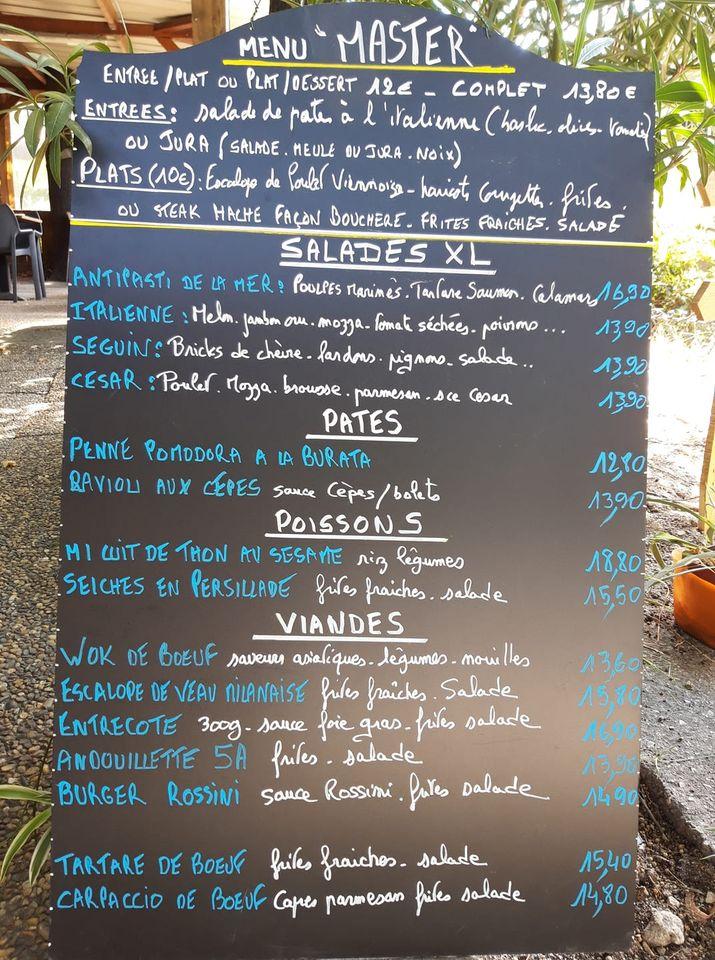 MENU "MASTER"
ENTREE/PLAT OU PLAT/DESSERT 12€ - COMPLET 13,80€
ENTREES: salade de pates à l'italienne (
OU JURA (SALADE. MEULE DU JURA. NOIX)
PLATS (10€): Escalope de Poulet Viennoise - haricots Courgettes. frites.
OU STEAK HACHE FAÇON BOUCHERE. FRITES FRAICHES. SALADE
SALADES XL
ANTIPASTI DE LA MER: Poulpes Marinés. Tartare Saumon. Calamars 16,90
ITALIENNE: Melon. jambon cru. mozza. tomate séchées. poivrons... 13,90
SEGUIN: Bricks de chèvre. lardons. pignons. salade.. 13,90
CESAR: Poulet. Mozza. brousse. parmesan. sce Cesar 13,90
PATES
PENNE POMODORA A LA BURATA 12,80
RAVIOLI AUX CÈPES sauce Cèpes/bolets 13,90
POISSONS
MI CUIT DE THON AU SESAME riz légumes 18,80
SEICHES EN PERSILLADE frites fraiches. salade 15,50
VIANDES
WOK DE BOEUF saveurs asiatiques. légumes. nouilles 13,60
ESCALOPE DE VEAU MILANAISE frites fraiches. Salade 15,80
ENTRECOTE 300g. sauce foie gras. frites salade 16,90
ANDOUILLETTE 5A frites. salade 13,90
BURGER ROSSINI sauce Rossini. frites salade 14,90
TARTARE DE BOEUF frites fraiches. salade 15,40
CARPACCIO DE BOEUF Capres parmesan frites salade 14,80